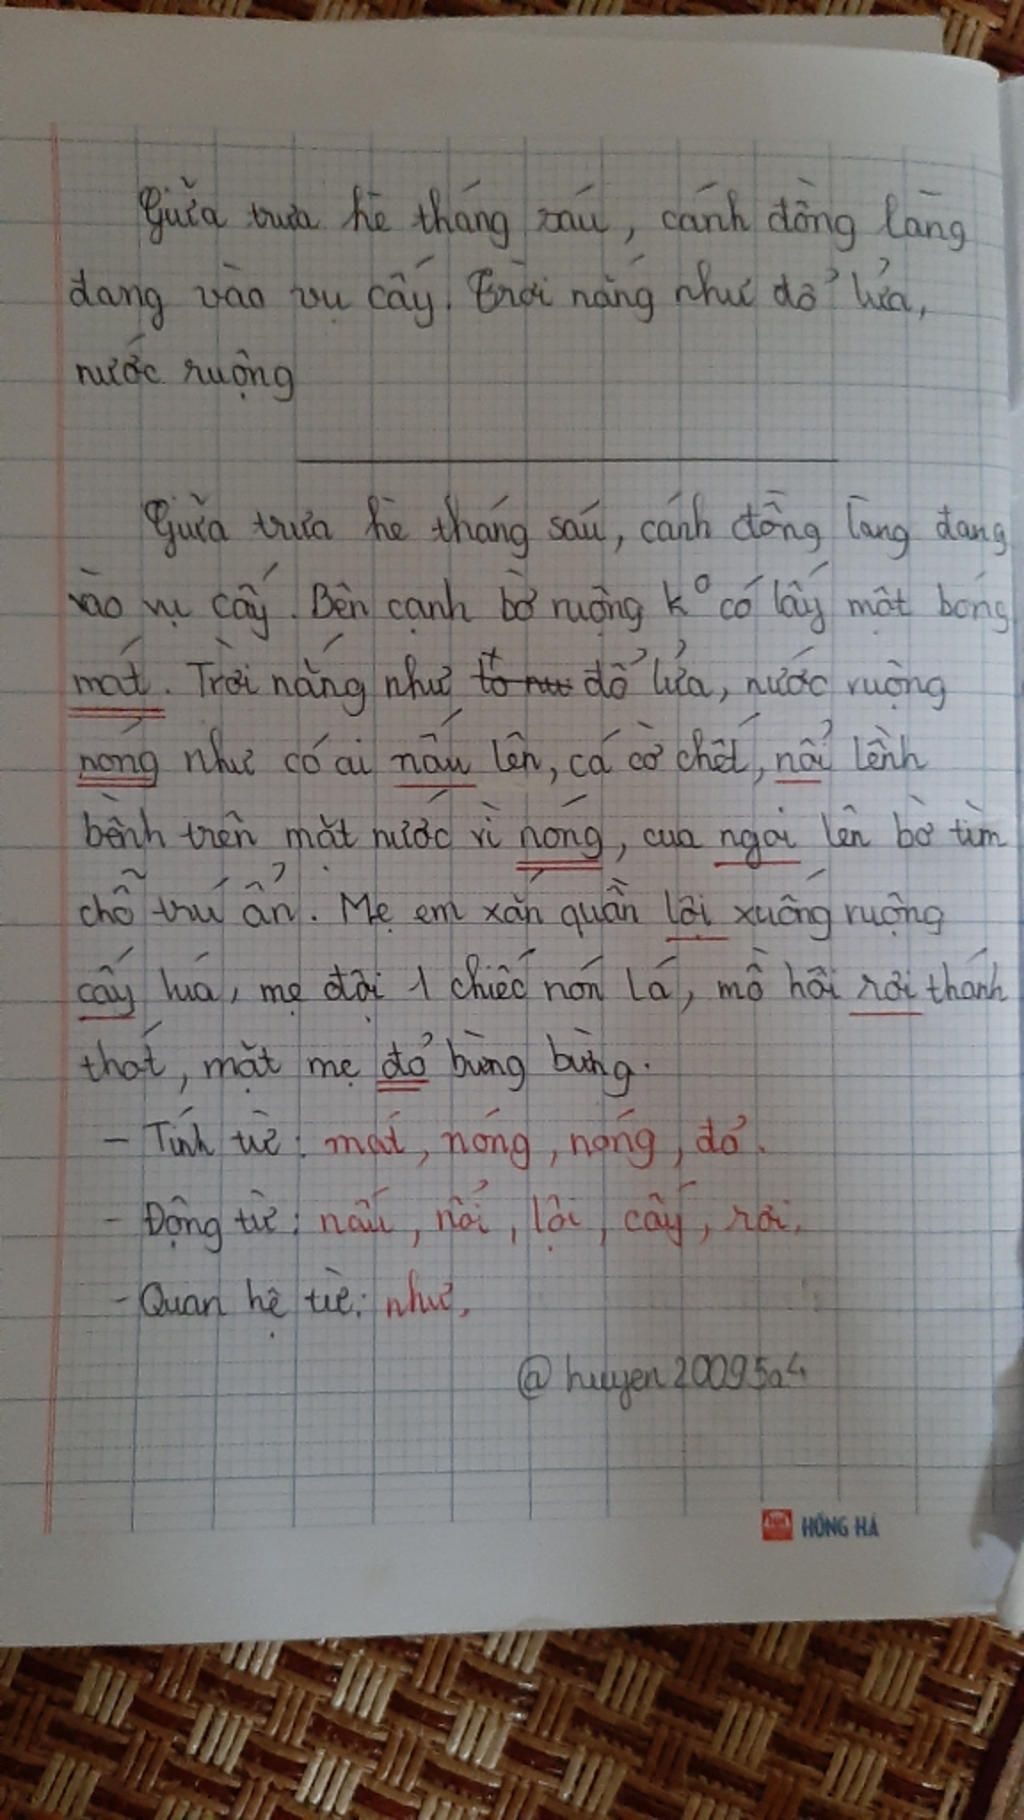 Giữa trưa hè tháng sáu, cánh đồng làng
đang vào vụ cấy. Trời nắng như đổ lửa,
nước ruộng
Giữa trưa hè tháng sáu, cánh đồng làng đang
vào vụ cấy. Bên cạnh bờ ruộng k° có lấy một bóng
mát. Trời nắng như đổ lửa, nước ruộng
nóng như có ai nấu lên, cá cờ chết, nổi lềnh
bềnh trên mặt nước vì nóng, cua ngoi lên bờ tìm
chỗ trú ẩn. Mẹ em xắn quần lội xuống ruộng
cấy lúa, mẹ đội 1 chiếc nón lá, mồ hôi rơi thánh
thót, mặt mẹ đỏ bừng bừng.
- Tính từ: mát, nóng, nóng, đỏ.
- Động từ: nấu, nổi, lội, cấy, rơi.
- Quan hệ từ: như,
@huyen20095a4
HỒNG HÀ